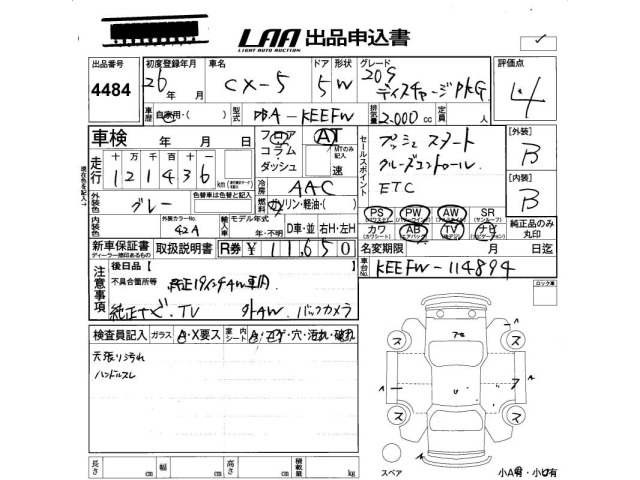 LAA 出品申込書
LIGHT AUTO AUCTION
出品番号 初度登録年月 車名 ドア 形状 グレード 評価点
4484 26年 月 CX-5 5 W 20S ディスチャージPKG 4
車歴 自家用・( ) 型式 DBA-KEEFW 排気量 2.000 cc 定員 人
車検 年 月 日 フロア コラム・ダッシュ AT MTのみ記入 速
セールスポイント プッシュスタート
クルーズコントロール
ETC
[外装] B
[内装] B
走行 十万 万 千 百 十 一
121436 km
現在の色を記入
冷房 AAC
外装色 グレー 色替車は色替と記入 燃料 ガソリン・軽油・( )
内装色 外装カラーNo. 42A 輸入車 モデル年式 年・不明 D車・並 右H・左H
PS PW AW SR (サンルーフ)
カワ (カワシート) AB TV ナビ
純正品のみ丸印
新車保証書 ディーラー捺印あるもの 取扱説明書 R券 ¥ 11,650
名変期限 月 日迄
車台No. KEEFW-114894
注意事項 後日品【
不具合箇所等 純正19インチAW車内
純正ナビ・TV 社外AW バックカメラ
ロック車
検査員記入 ガラス A・X要ス 室内シート 穴・汚れ・破れ
天張り汚れ
ハンドルスレ
A
A
A
ス
ス
ス
ス
スペア
長さ cm 幅 cm 高さ cm 積載量 kg
小A有・小U有